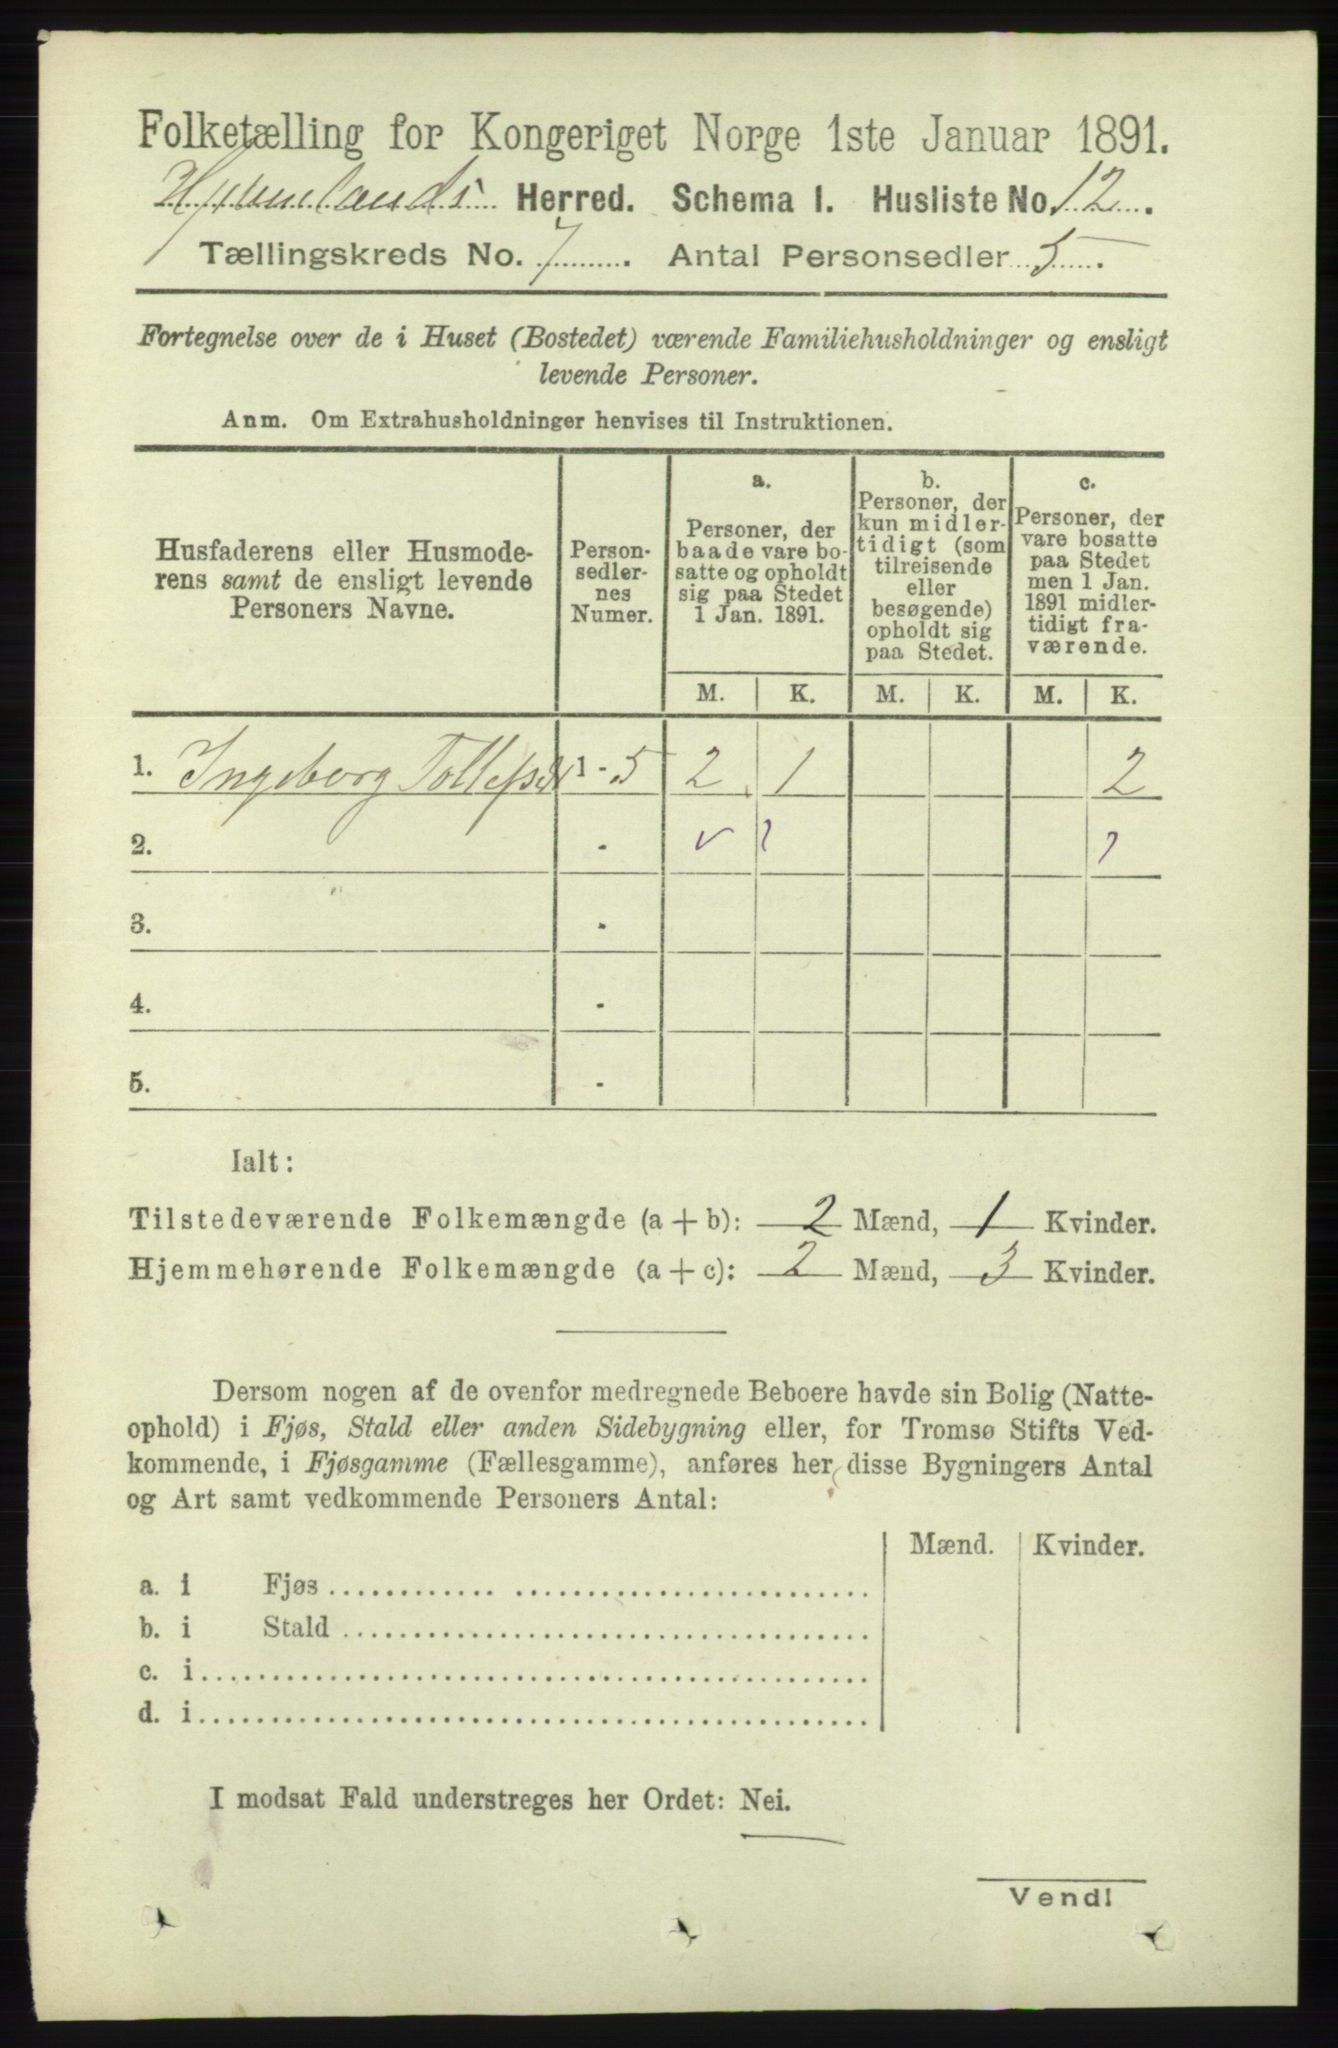 Folketælling for Kongeriget Norge 1ste Januar 1891.
Hjelmelands Herred. Schema I. Husliste No. 12.
Tællingskreds No. 7. Antal Personsedler 5.
Fortegnelse over de i Huset (Bostedet) værende Familiehusholdninger og ensligt
levende Personer.
Anm. Om Extrahusholdninger henvises til Instruktionen.
Husfaderens eller Husmode-
rens samt de ensligt levende
Personers Navne.
Person-
sedler-
nes
Numer.
a.
Personer, der
baade vare bo-
satte og opholdt
sig paa Stedet
1 Jan. 1891.
b.
Personer, der
kun midler-
tidigt (som
tilreisende
eller
besøgende)
opholdt sig
paa Stedet.
c.
Personer, der
vare bosatte
paa Stedet
men 1 Jan.
1891 midler-
tidigt fra-
værende.
M. K. M. K. M. K.
1. Ingeborg Tollefsdt 1 - 5 2 1 2
2. -
3. -
4. -
5. -
Ialt:
Tilstedeværende Folkemængde (a + b): 2 Mænd, 1 Kvinder.
Hjemmehørende Folkemængde (a + c): 2 Mænd, 3 Kvinder.
Dersom nogen af de ovenfor medregnede Beboere havde sin Bolig (Natte-
ophold) i Fjøs, Stald eller anden Sidebygning eller, for Tromsø Stifts Ved-
kommende, i Fjøsgamme (Fællesgamme), anføres her disse Bygningers Antal
og Art samt vedkommende Personers Antal:
Mænd. Kvinder.
a. i Fjøs
b. i Stald
c. i
d. i
I modsat Fald understreges her Ordet: Nei.
Vend!